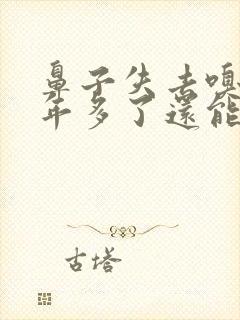 鼻子失去嗅
年多了還能
古塔